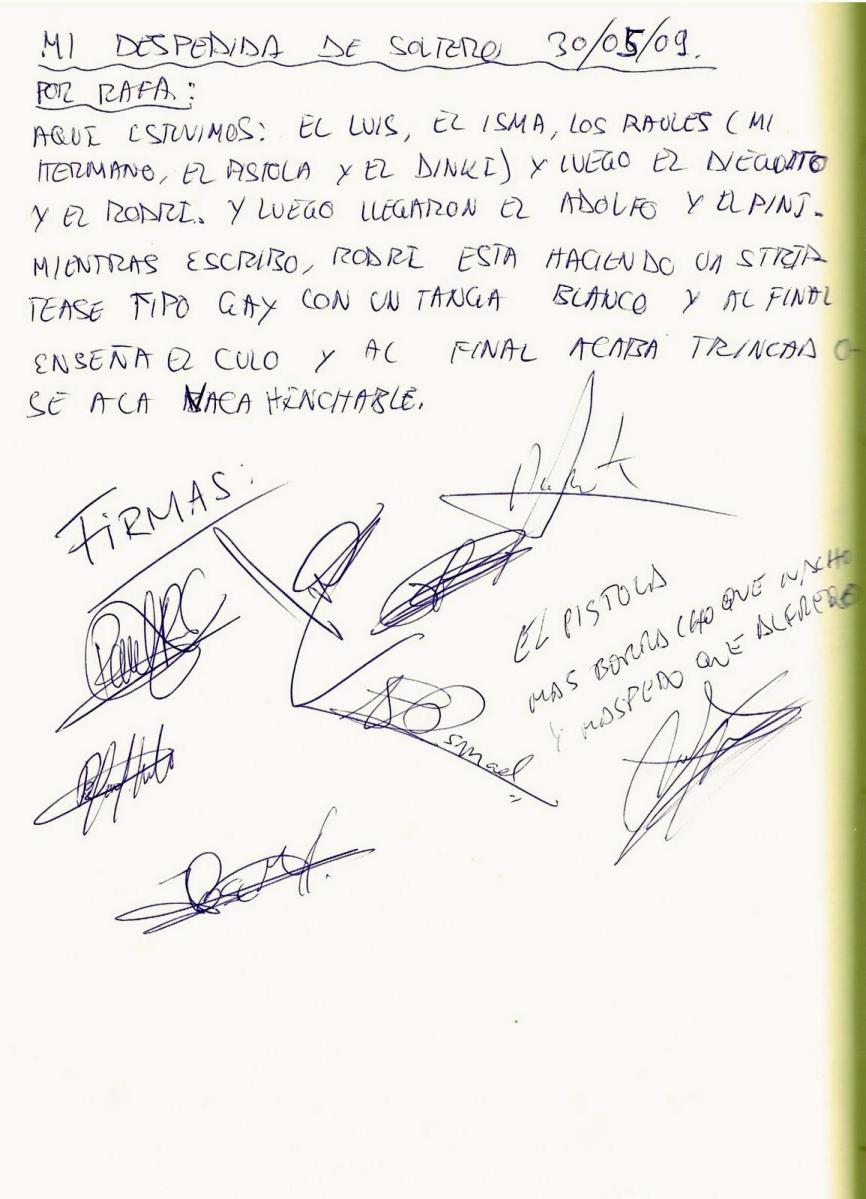 MI DESPEDIDA DE SOLTERO 30/05/09.
POR RAFA:
AQUI ESTUVIMOS: EL LUIS, EL ISMA, LOS RAULES (MI
HERMANO, EL PISTOLA Y EL DINKI) Y LUEGO EL DIEGUITO
Y EL RODRI. Y LUEGO LLEGARON EL ADOLFO Y EL PINI.
MIENTRAS ESCRIBO, RODRI ESTA HACIENDO UN STRIP
TEASE TIPO GAY CON UN TANGA BLANCO Y AL FINAL
ENSEÑA EL CULO Y AL FINAL ACABA TRINCANDO
SE A LA VACA HINCHABLE.
FIRMAS:
EL PISTOLA
MAS BORRACHO QUE NACHO
Y MASPEDO QUE ALFREDO
Ismael
Jose M.